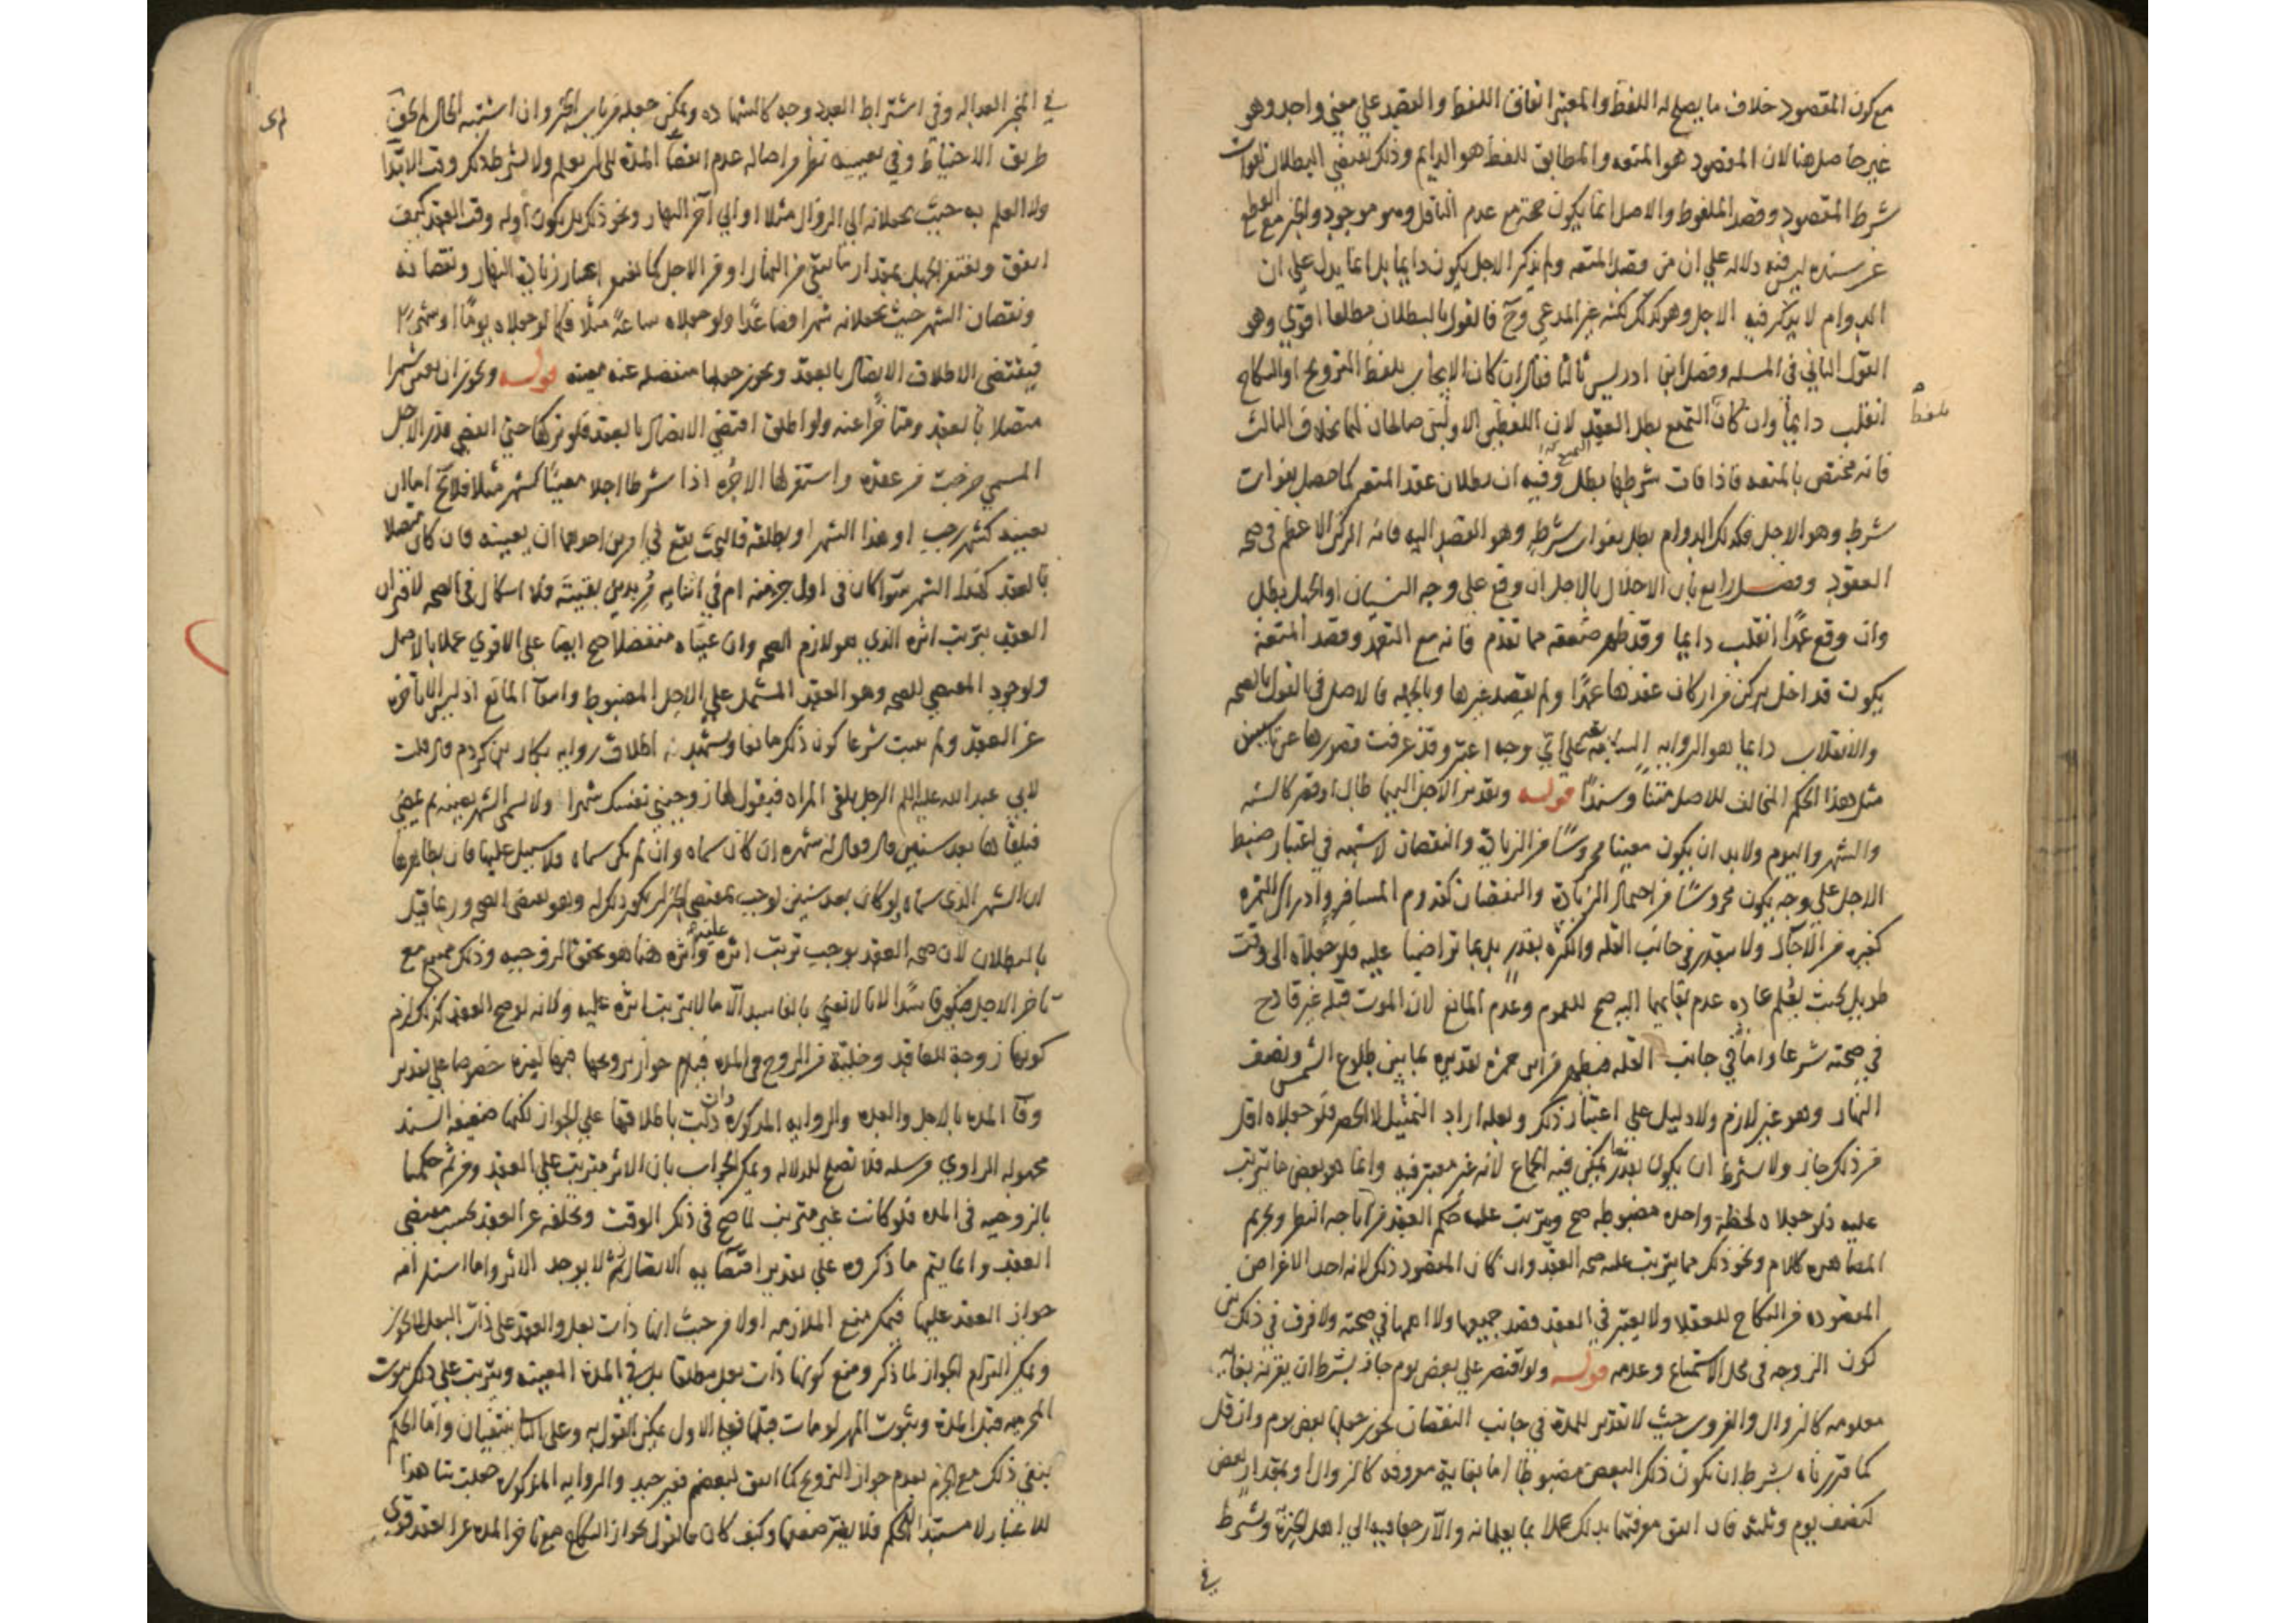 مع كون المقصود خلاف ما يصلح له اللفظ والمعتبر اتفاق اللفظ والعقد على معنى واحد وهو
غير حاصل هنا لان المقصود هو المتعه والمطابق للفظ هو الدايم وذلك يقتضي البطلان لفوات
شرط المقصود وقصد الملفوظ والاصل انما يكون حجة مع عدم الناقل وهو موجود والخبر مع قطع
عن سنده ليس فيه دلاله على ان من قصد المتعه ولم يذكر الاجل يكون دايما بل انما يدل على ان
الدوام لا يذكر فيه الاجل وهو كذلك لكنه غير المدعي وح فالقول بالبطلان مطلقا اقوى وهو
القول الثاني في المسله وفصل ابن ادريس ثالثا فقال ان كان الايجاب بلفظ التزويج او النكاح
انقلب دايما وان كان التمتع بطل العقد لان اللفظين الاولين صالحان لهما بخلاف الثالث
بلفظ
فانه مختص بالمتعه فاذا فات شرطها بطل وفيه ان بطلان عقد المتعه كما حصل بفوات
شرط وهو الاجل فكذلك الدوام بطل بفوات شرطه وهو القصد اليه فانه الركن الاعظم في صحه
العقود وفصل رابع بان الاخلال بالاجل ان وقع على وجه النسيان او الجهل بطل
وان وقع عمدا انقلب دايما وقد ظهر ضعفه مما تقدم فانه مع التعمد وقصد المتعة
يكون قد اخل بركن من اركان عقدها عمدا ولم يقصد غيرها وبالجمله فالاصل في القول بالصحه
والانقلاب دايما هو الروايه السابقه على اي وجه اعتبر وقد عرفت قصورها عن تاسيس
مثل هذا الحكم المخالف للاصل متنا وسندا قوله وتقدير الاجل اليهما طال او قصر كالسنه
والشهر واليوم ولا بد ان يكون معينا محروسا من الزيادة والنقصان لا شبهه في اعتبار ضبط
الاجل على وجه يكون محروسا من احتمال الزيادة والنقصان كقدوم المسافر وادراك الثمره
كغيره من الآجال ولا يتقدر في جانب القله والكثره بقدر بل بما تراضيا عليه فلو جعلاه الى وقت
طويل بحيث يعلم عاده عدم بقايهما اليه صح للعموم وعدم المانع لان الموت قبله غير قادح
في صحته شرعا واما في جانب القله فيظهر من ابن حمزه تقديره بما بين طلوع الشمس ونصف
النهار وهو غير لازم ولا دليل على اعتبار ذلك ولعله اراد التمثيل لا الحصر فلو جعلاه اقل
من ذلك جاز ولا يشترط ان يكون بقدر يمكن فيه الجماع لانه غير معتبر فيه وانما هو بعض ما يترتب
عليه فلو جعلاه لحظة واحده مضبوطه صح وترتب عليه حكم العقد من اباحه النظر وتحريم
المصاهره كلام ونحو ذلك مما يترتب على صحه العقد وان كان المقصود ذلك لانه احد الاغراض
المقصوده من النكاح للعقلا ولا يعتبر في العقد قصد جميعها ولا اهمها في صحته ولا فرق في ذلك بين
كون الزوجه في محل الاستمتاع وعدمه قوله ولو اقتصر على بعض يوم جاز بشرط ان يقرنه بغايه
معلومه كالزوال والغروب حيث لا تقدير للمدة في جانب النقصان يجوز جعلها بعض يوم وان قل
كما قررناه بشرط ان يكون ذلك البعض مضبوطا اما بغاية معروفه كالزوال او بمقدار معين
كنصف يوم وثلثه فان اتفق معرفتهما بذلك عملا بما يعلمانه والا رجعا فيه الى اهل الخبرة ويشترط
في
في المخبر العداله وفي اشتراط العدد وجه كالشهاده ويمكن جعله من باب الخبر وان اشتبه الحال لم يخف
طريق الاحتياط وفي تعيينه نظر من اصاله عدم انقضا المدة الى ان يعلم ولا يشترط ذكر وقت الابتدا
ولا العلم به حيث يجعلانه الى الزوال مثلا او الى آخر النهار ونحو ذلك بل يكون اوله وقت العقد كيف
اتفق ويغتفر الجهل بمقدار ما بقي من النهار او من الاجل كما يغتفر اعتبار زيادة النهار ونقصانه
ونقصان الشهر حيث يجعلانه شهرا فصاعدا ولو جعلاه ساعة مثلا فكما لو جعلاه يوما او شهرا
فيقتضى الاطلاق الاتصال بالعقد ويجوز جعلها منفصله عنه معينه قوله ويجوز ان يعين شهرا
متصلا بالعقد ومتاخرا عنه ولو اطلق اقتضى الاتصال بالعقد فلو تركها حتى انقضى قدر الاجل
المسمى خرجت من عقده واستقر لها الاجره اذا شرطا اجلا معينا كشهر مثلا فلا يخ اما ان
يعينه كشهر رجب او هذا الشهر او يطلقه فالبحث يقع في امرين احدهما ان يعينه فان كان متصلا
بالعقد كهذا الشهر سوا كان في اول جزء منه ام في اثنايه مريدين بقيته فلا اشكال في الصحه لاقتران
العقد بترتب اثره الذي هو لازم الصحه وان عيناه منفصلا صح ايضا على الاقوى عملا بالاصل
ولوجود المقتضي للصحه وهو العقد المشتمل على الاجل المضبوط وانتفا المانع اذ ليس الا تاخره
عن العقد ولم يثبت شرعا كون ذلك مانعا ويشهد له اطلاق روايه بكار بن كردم قال قلت
لابي عبد الله عليه السلام الرجل يلقى المراه فيقول لها زوجيني نفسك شهرا ولا يسمى الشهر بعينه ثم يمضي
فيلقاها بعد سنين قال فقال له شهره ان كان سماه وان لم يكن سماه فلا سبيل عليها فان ظاهرها
ان الشهر الذي سماه لو كان بعد سنين لوجب بمقتضى الجزا ان يكون ذلك له وهو يقتضى الصحه وربما قيل
بالبطلان لان صحه العقد توجب ترتب اثره عليه واثره هنا هو تحقق الزوجيه وذلك ممتنع مع
تاخر الاجل فيكون فاسدا لانا لا نعني بالفاسد الا ما لا يترتب اثره عليه ولانه لو صح العقد كذلك لزم
كونها زوجة للعاقد وخلية من الزوج في المدة فيلزم جواز تزويجها فيها لغيره خصوصا على تقدير
وفا المدة بالاجل والعده والروايه المذكورة وان دلت باطلاقها على الجواز لكنها ضعيفه السند
مجهوله الراوي مرسله فلا تصلح للدلاله ويمكن الجواب بان الاثر مترتب على العقد ومن ثم حكمنا
بالزوجيه في المدة فلو كانت غير مترتب لما صح في ذلك الوقت وتخلفه عن العقد بحسب مقتضى
العقد وانما يتم ما ذكروه على تقدير اقتضايه الاتصال ثم لا يوجد الاثر واما استلزامه
جواز العقد عليها فيمكن منع الملازمه اولا من حيث انها ذات بعل والعقد على ذات البعل لا يجوز
ويمكن التزام الجواز لما ذكر ومنع كونها ذات بعل مطلقا بل في المدة المعينه ويترتب على ذلك ثبوت
المحرميه قبل المدة وثبوت المهر لو مات قبلها فعلى الاول يمكن القول به وعلى الثاني ينتفيان واما الحكم
بنفي ذلك مع الجزم بعدم جواز التزويج كما اتفق لبعضهم فغير جيد والروايه المذكورة جعلت شاهدا
للاعتبار لا مستندا للحكم فلا يضر ضعفها وكيف كان فالقول بجواز النكاح مع تاخر المدة عن العقد قوي